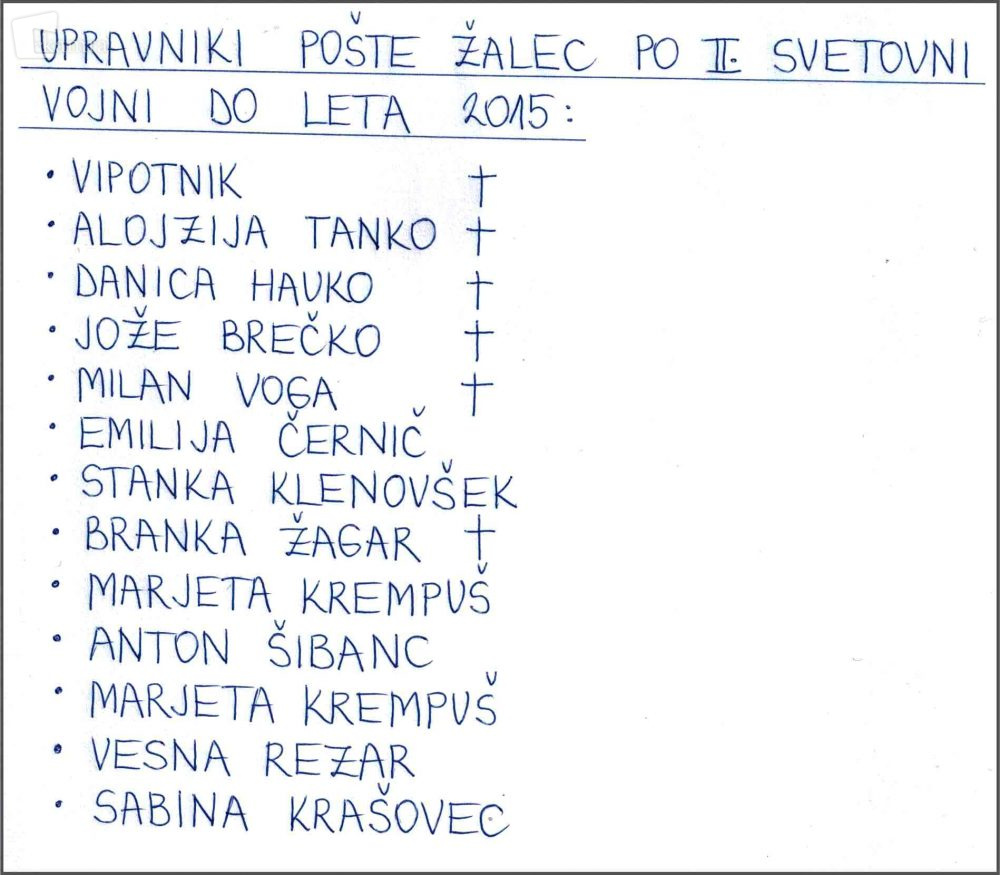 UPRAVNIKI POŠTE ŽALEC PO II. SVETOVNI
VOJNI DO LETA 2015:
• VIPOTNIK †
• ALOJZIJA TANKO †
• DANICA HAUKO †
• JOŽE BREČKO †
• MILAN VOGA †
• EMILIJA ČERNIČ
• STANKA KLENOVŠEK
• BRANKA ŽAGAR †
• MARJETA KREMPUŠ
• ANTON ŠIBANC
• MARJETA KREMPUŠ
• VESNA REZAR
• SABINA KRAŠOVEC